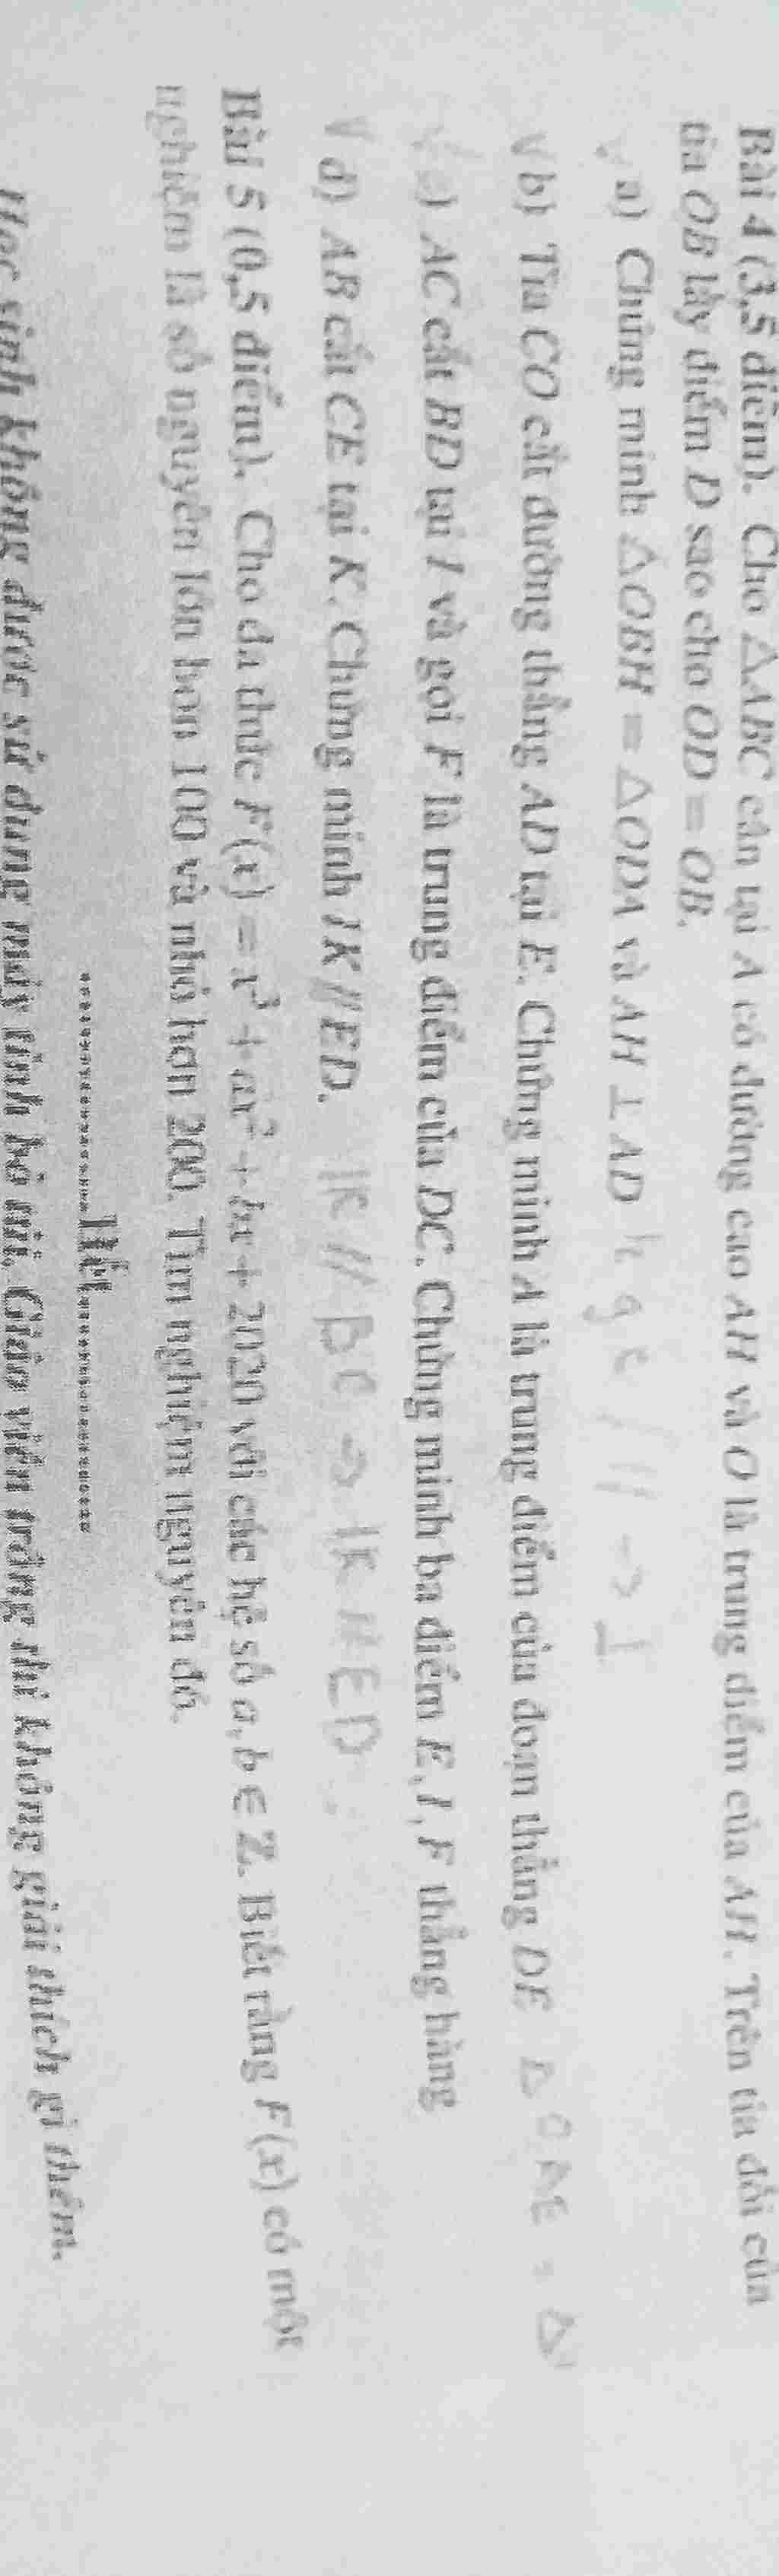 Bài 4 (3,5 điểm). Cho △ABC cân tại A có đường cao AH và O là trung điểm của AH. Trên tia đối của
tia OB lấy điểm D sao cho OD = OB.
a) Chứng minh △OBH = △ODA và AH ⊥ AD
b) Tia CO cắt đường thẳng AD tại E. Chứng minh A là trung điểm của đoạn thẳng DE △OAE = △
c) AC cắt BD tại I và gọi F là trung điểm của DC. Chứng minh ba điểm E, I, F thẳng hàng
d) AB cắt CE tại K. Chứng minh IK // ED. IK // BC → IK // ED
Bài 5 (0,5 điểm). Cho đa thức F(x) = x³ + ax² + bx + 2020 với các hệ số a, b ∈ Z. Biết rằng F(x) có một
nghiệm là số nguyên lớn hơn 100 và nhỏ hơn 200. Tìm nghiệm nguyên đó.
Hết
Học sinh không được sử dụng máy tính bỏ túi. Giáo viên trông thi không giải thích gì thêm.